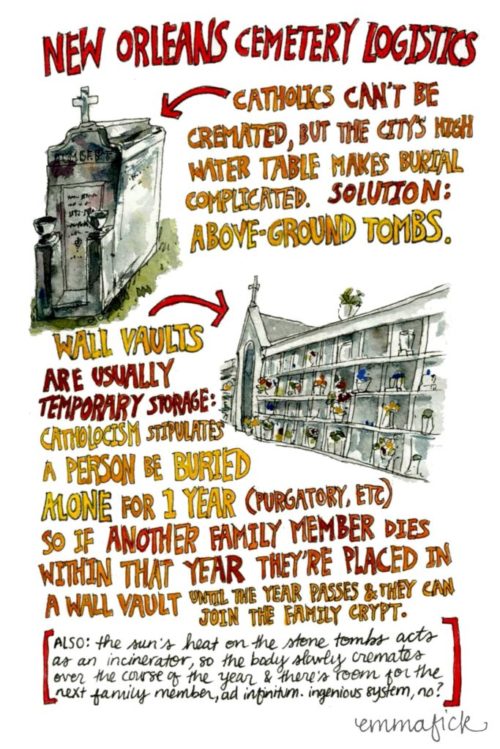 NEW ORLEANS CEMETERY LOGISTICS
CATHOLICS CAN'T BE
CREMATED, BUT THE CITY'S HIGH
WATER TABLE MAKES BURIAL
COMPLICATED. SOLUTION:
ABOVE-GROUND TOMBS.
WALL VAULTS
ARE USUALLY
TEMPORARY STORAGE:
CATHOLOCISM STIPULATES
A PERSON BE BURIED
ALONE FOR 1 YEAR (PURGATORY, ETC)
SO IF ANOTHER FAMILY MEMBER DIES
WITHIN THAT YEAR THEY'RE PLACED IN
A WALL VAULT UNTIL THE YEAR PASSES & THEY CAN
JOIN THE FAMILY CRYPT.
[ALSO: the sun's heat on the stone tombs acts
as an incinerator, so the body slowly cremates
over the course of the year & there's room for the
next family member, ad infinitum. ingenious system, no?]
emmafick